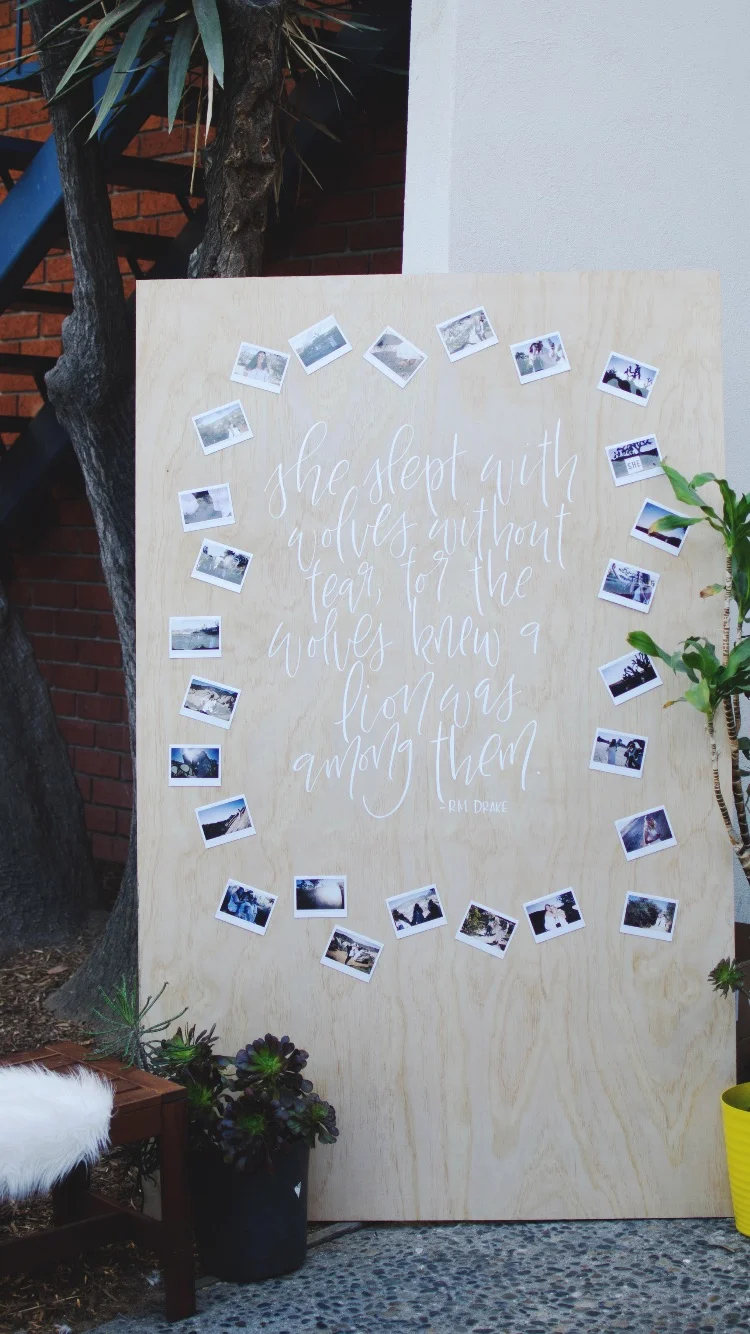 she slept with
wolves without
fear, for the
wolves knew a
lion was
among them.
-RM DRAKE
SHE